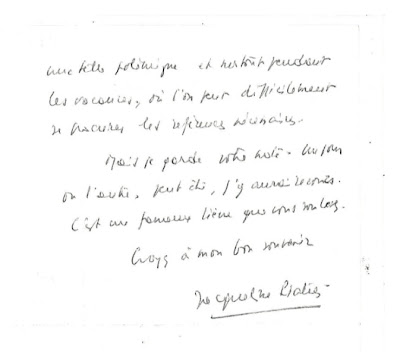 une telle polémique et surtout pendant
les vacances, où l'on peut difficilement
se procurer les références nécessaires.
Mais je garde votre note. Un jour
ou l'autre, peut-être, j'y aurai recours.
C'est une fameuse lièvre que vous soulevez.
Croyez à mon bon souvenir
Jacqueline